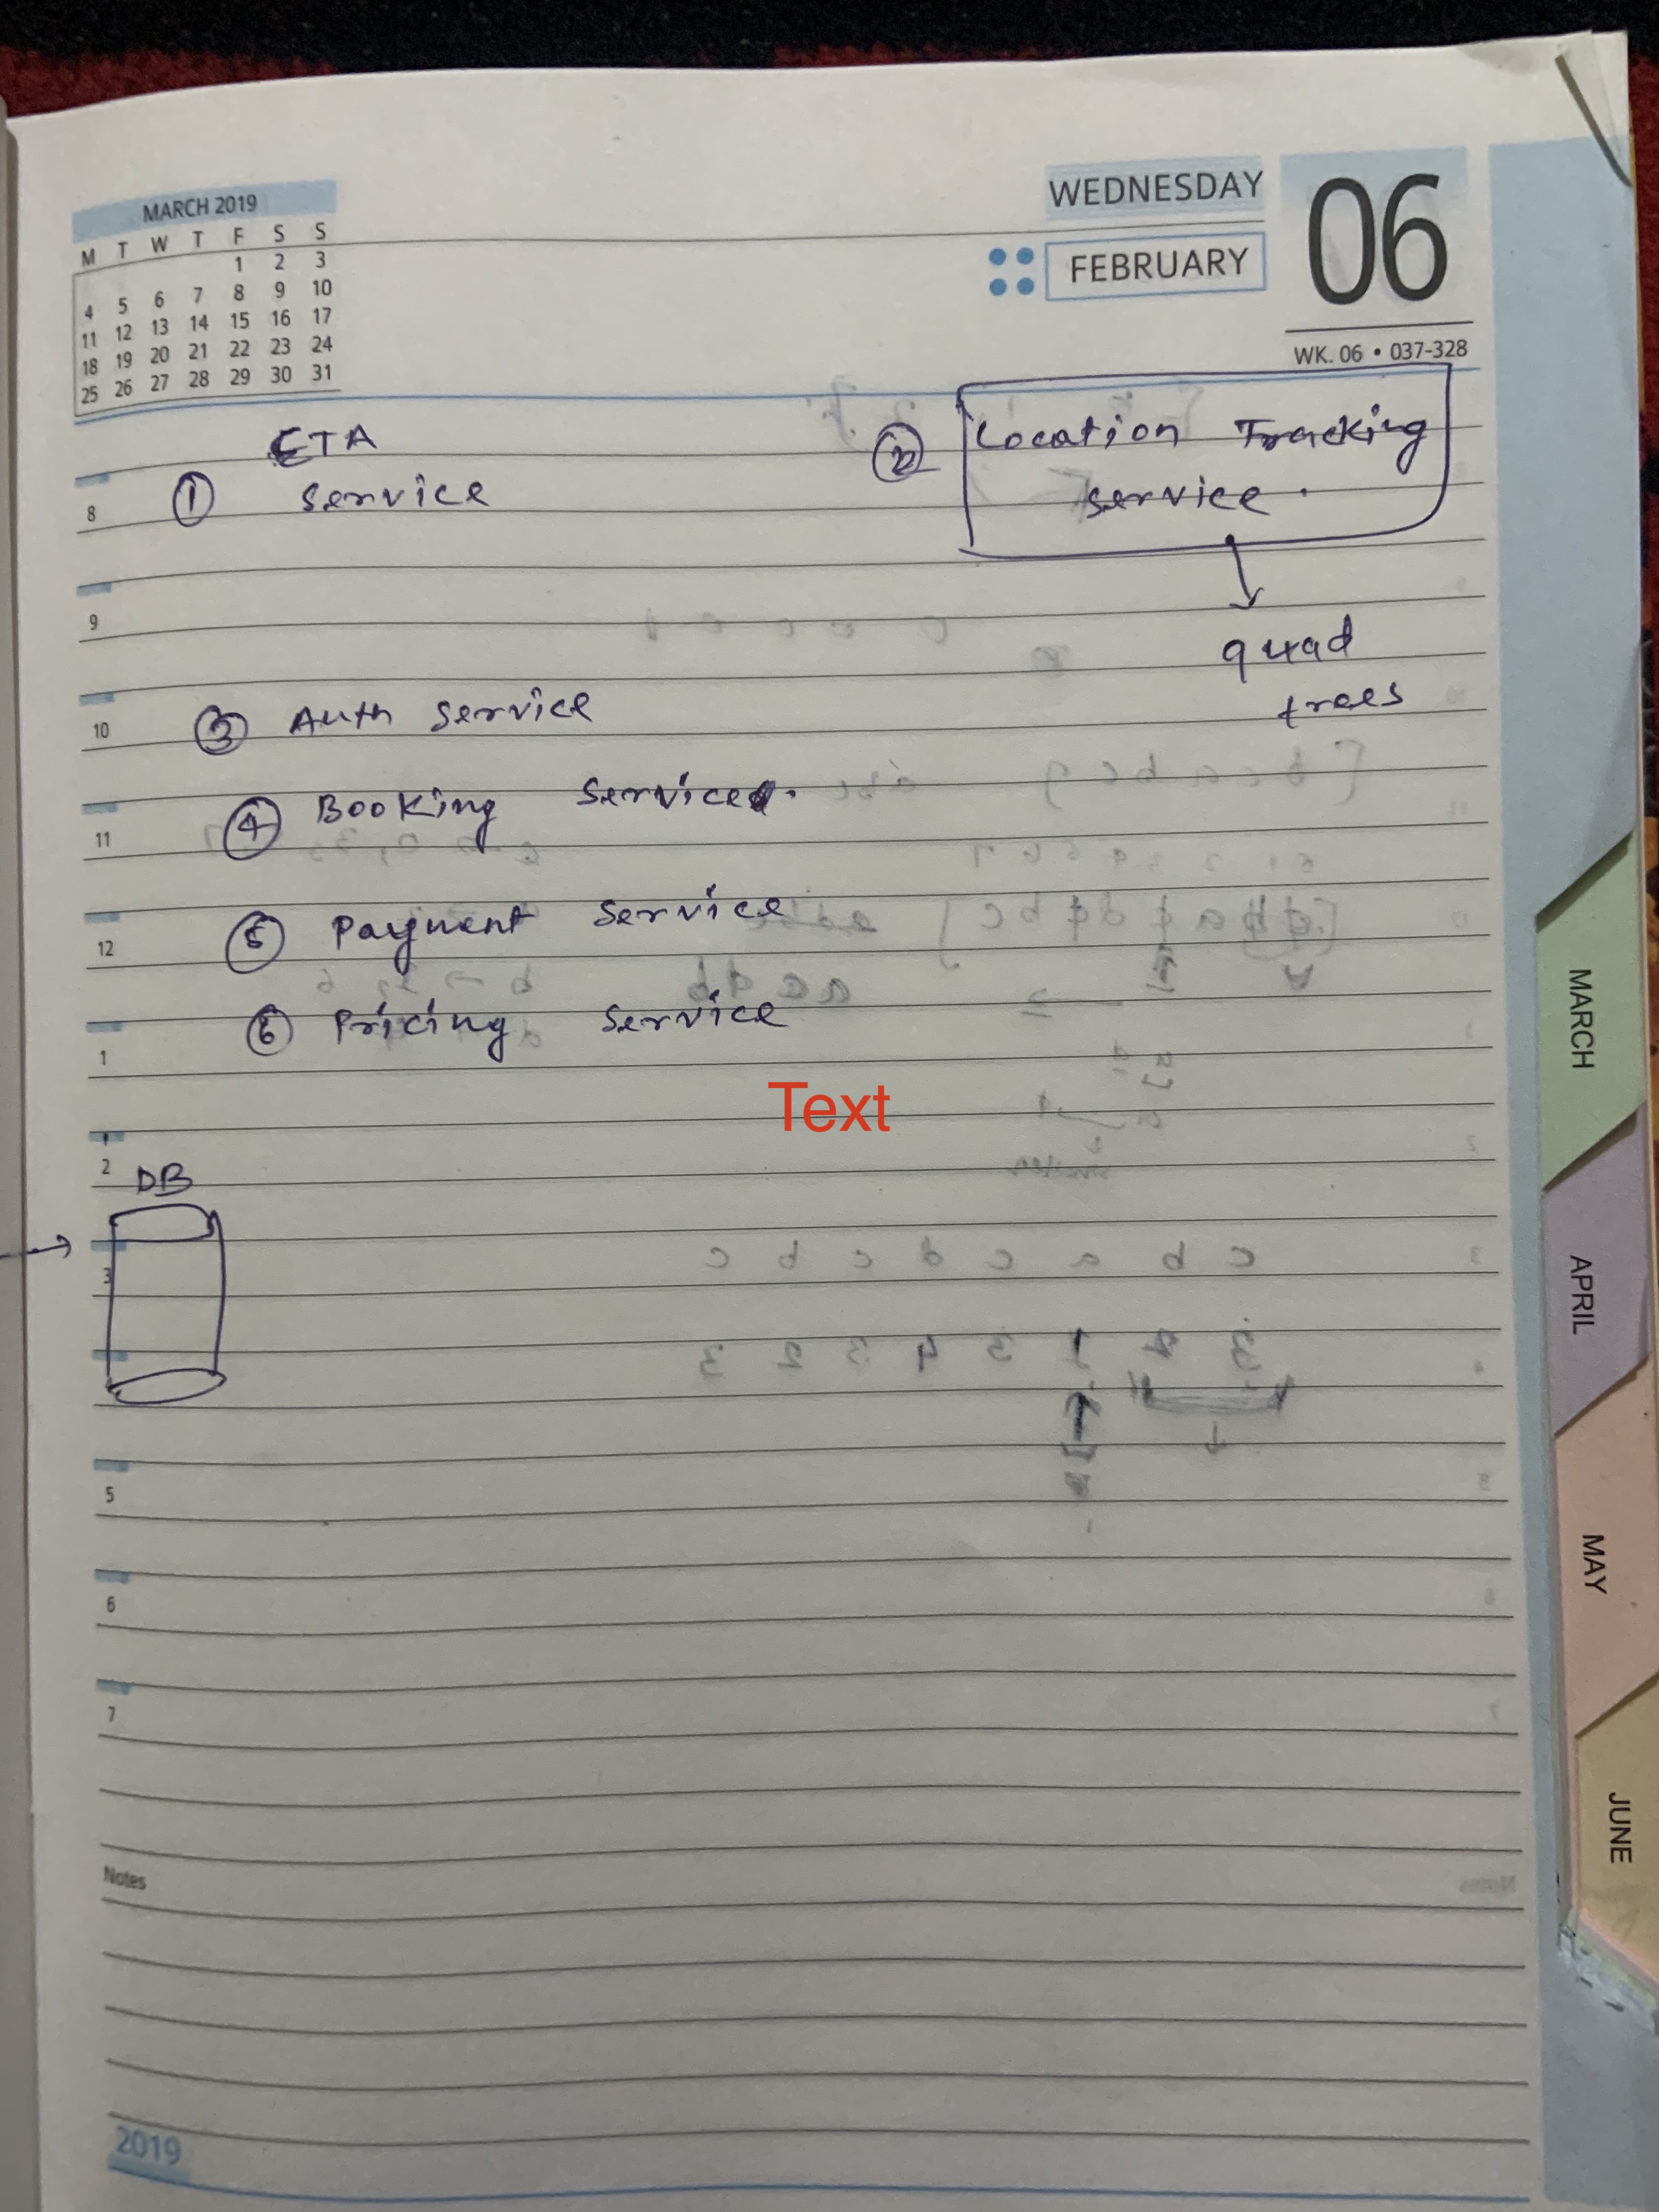 MARCH 2019
M T W T F S S
1 2 3
4 5 6 7 8 9 10
11 12 13 14 15 16 17
18 19 20 21 22 23 24
25 26 27 28 29 30 31
WEDNESDAY
FEBRUARY
06
WK. 06 • 037-328
ETA
① Service
② Location Tracking
service.
quad
trees
③ Auth service
④ Booking Service.
⑤ Payment Service
⑥ Pricing Service
Text
DB
8
9
10
11
12
1
2
3
5
6
7
Notes
2019
MARCH
APRIL
MAY
JUNE